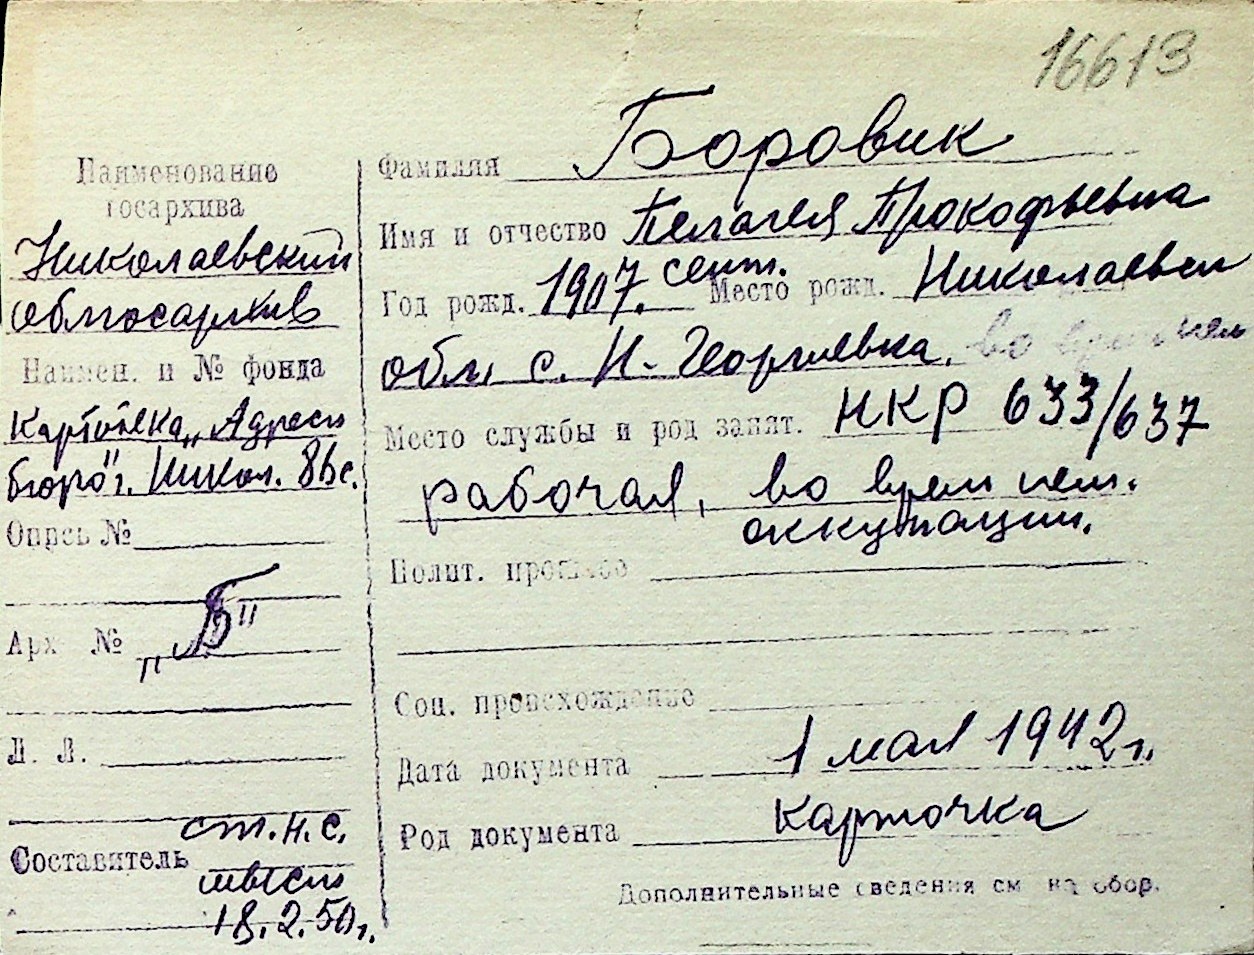 16613
Наименование
госархива
Николаевский
облгосархив
Наимен. и № фонда
Картотека „Адресн
бюро" г. Никол.
Опись №
Арх №
„Б"
Л. Л.
Составитель
ст. н. с.
18.2.50г.
Фамилия Боровик
Имя и отчество Пелагея Прокофьевна
Год рожд. 1907. сент. Место рожд. Николаевск
обл. с. Н-Георгиевка. во врем нем
Место службы и род занят. НКР 633/637
рабочая, во врем нем.
оккупации.
Полит. прошлое
Соц. происхождение
Дата документа 1 мая 1942г.
Род документа карточка
Дополнительные сведения см на обор.